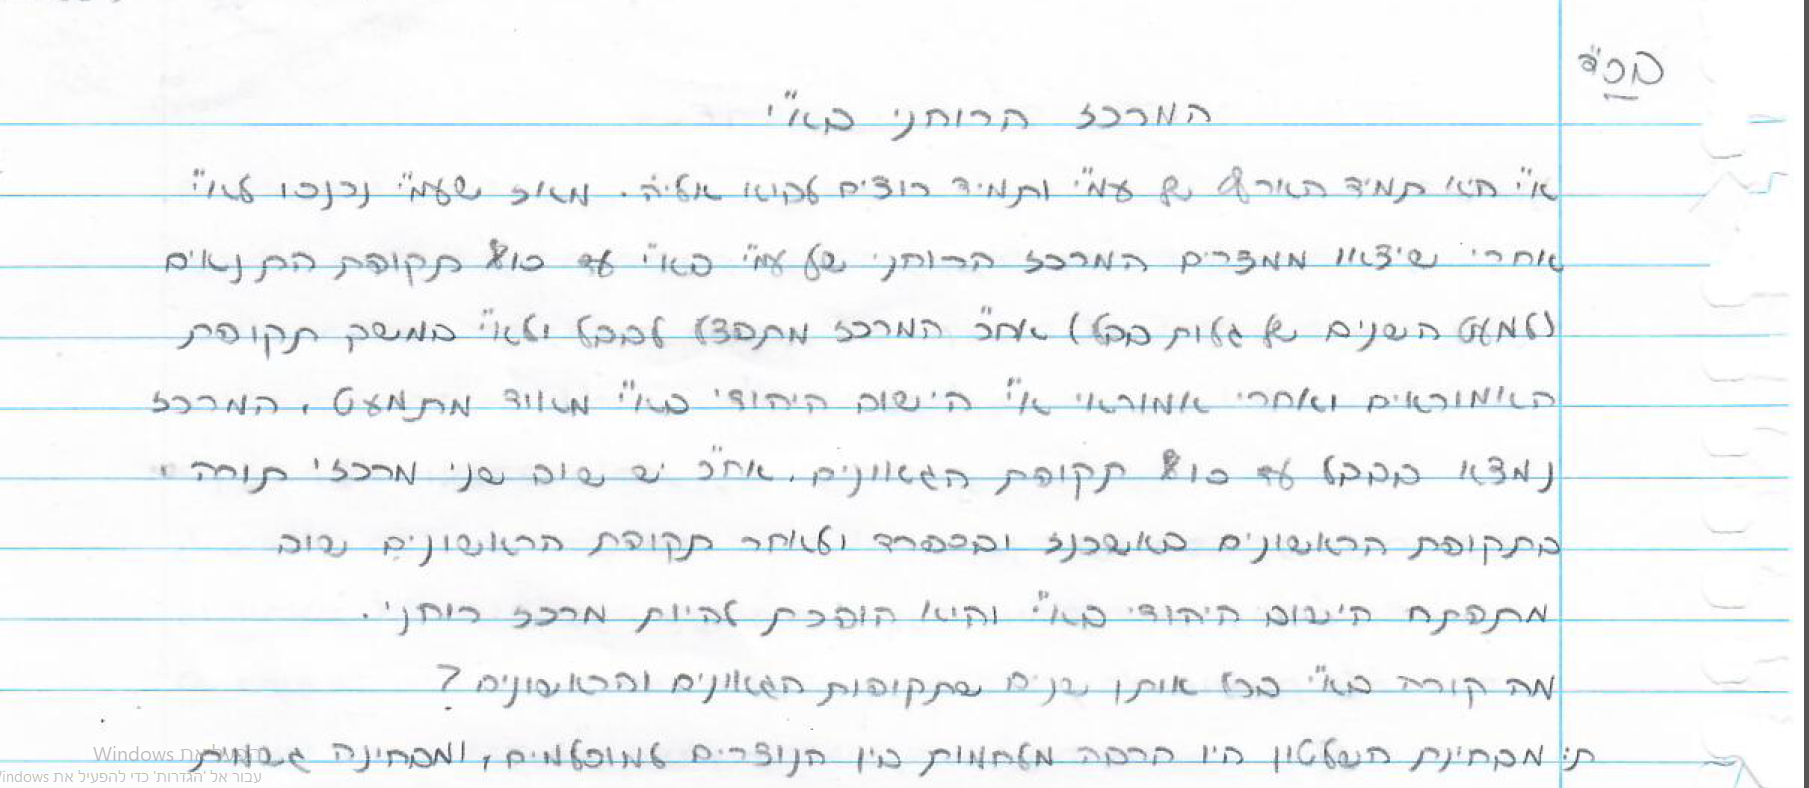 בס"ד
המרכז הרוחני בא"י
א"י היא תמיד הארץ של עמ"י ותמיד רוצים לבוא אליה. מאז שעמ"י נכנסו לא"י
אחרי שיצאו ממצרים המרכז הרוחני של עמ"י בא"י עד סוף תקופת התנאים
(למעט השנים של גלות בבל) אח"כ המרכז מתפצל לבבל ולא"י במשך תקופת
האמוראים ואחרי אמוראי א"י הישוב היהודי בא"י מאוד מתמעט, המרכז
נמצא בבבל עד סוף תקופת הגאונים. אח"כ יש שוב שני מרכזי תורה
בתקופת הראשונים באשכנז ובספרד ולאחר תקופת הראשונים שוב
מתפתח הישוב היהודי בא"י והיא הופכת להיות מרכז רוחני.
מה קורה בא"י בכל אותן שנים שתקופות הגאונים והראשונים?
ת: מבחינת השלטון היו הרבה מלחמות בין הנוצרים למוסלמים, ומבחינה גשמית
הפעל את Windows
עבור אל 'הגדרות' כדי להפעיל את Windows